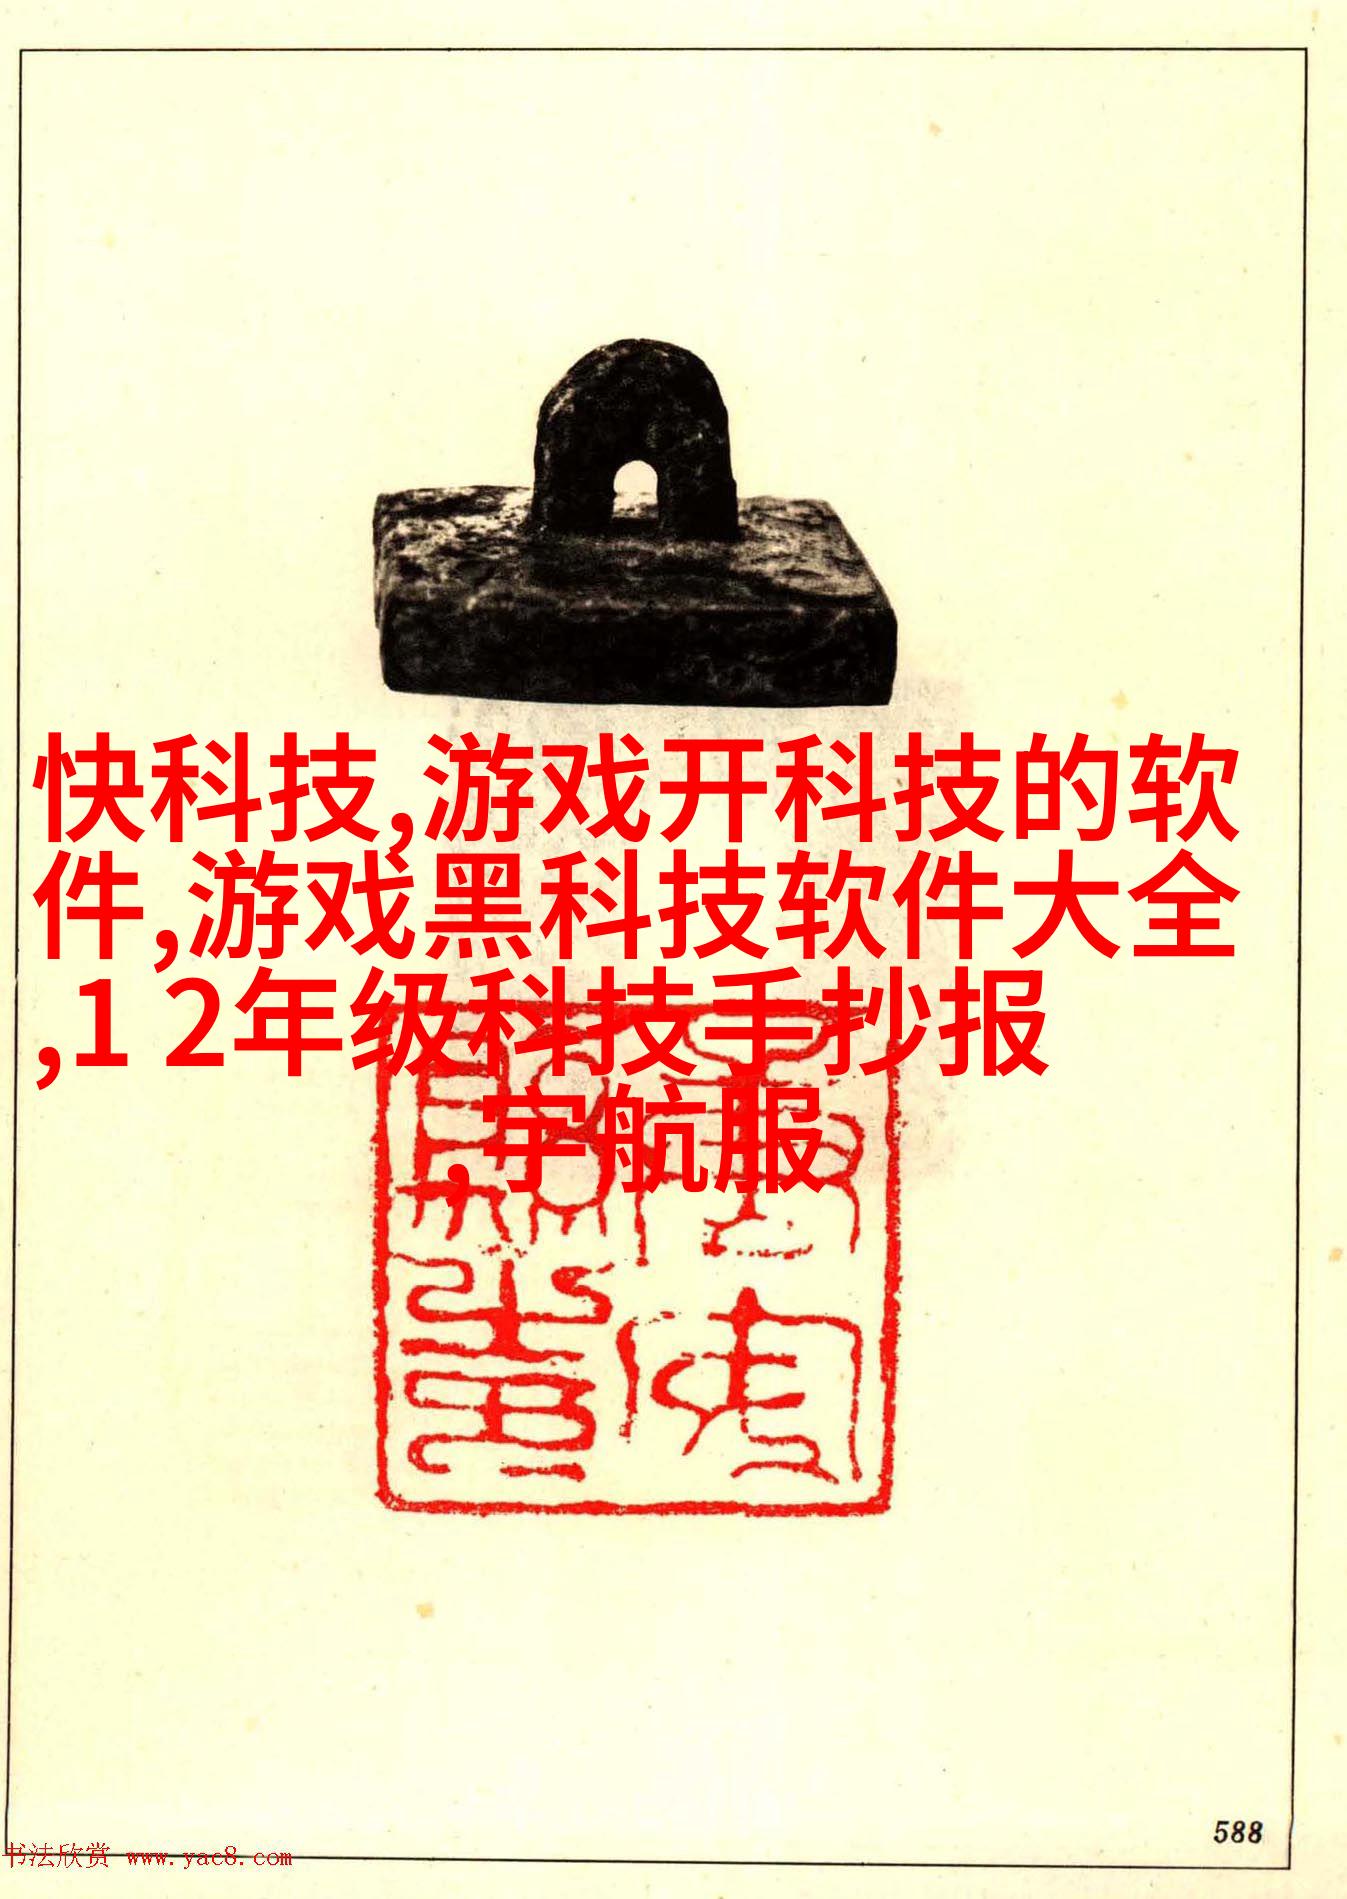 快科技,游戏开科技的软
件,游戏黑科技软件大全
,1 2年级科技手抄报
,宇航服
588
书法欣赏 www.yac8.com